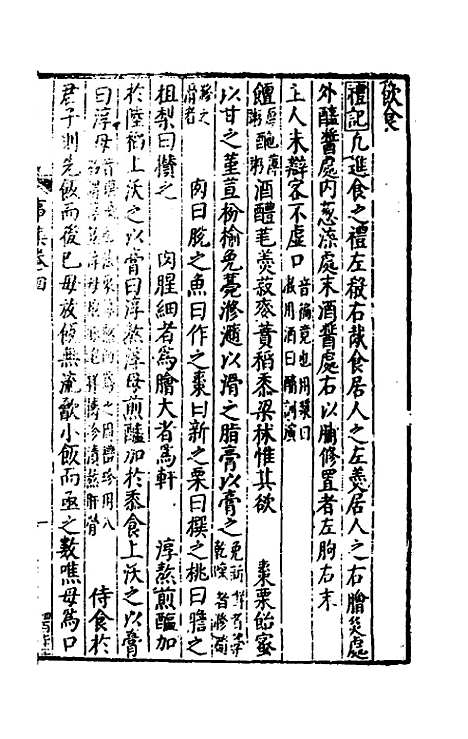 飲食
禮記凡進食之禮左殽右胾食居人之左羹居人之右膾炙處
外醯醬處內葱渫處末酒醬處右以脯脩置者左朐右末
主人未辯客不虛口
饘酏酒醴芼羹菽麥蕡稻黍粱秫惟其欲 棗栗飴蜜
以甘之堇荁枌榆免薧滫瀡以滑之脂膏以膏之
肉曰脫之魚曰作之棗曰新之栗曰撰之桃曰膽之
柤梨曰攢之 肉腥細者為膾大者為軒 淳熬煎醢加
於陸稻上沃之以膏曰淳熬淳母煎醢加於黍食上沃之以膏
曰淳母 侍食於
君子則先飯而後已毋放飯無流歠小飯而亟之數噍毋為口